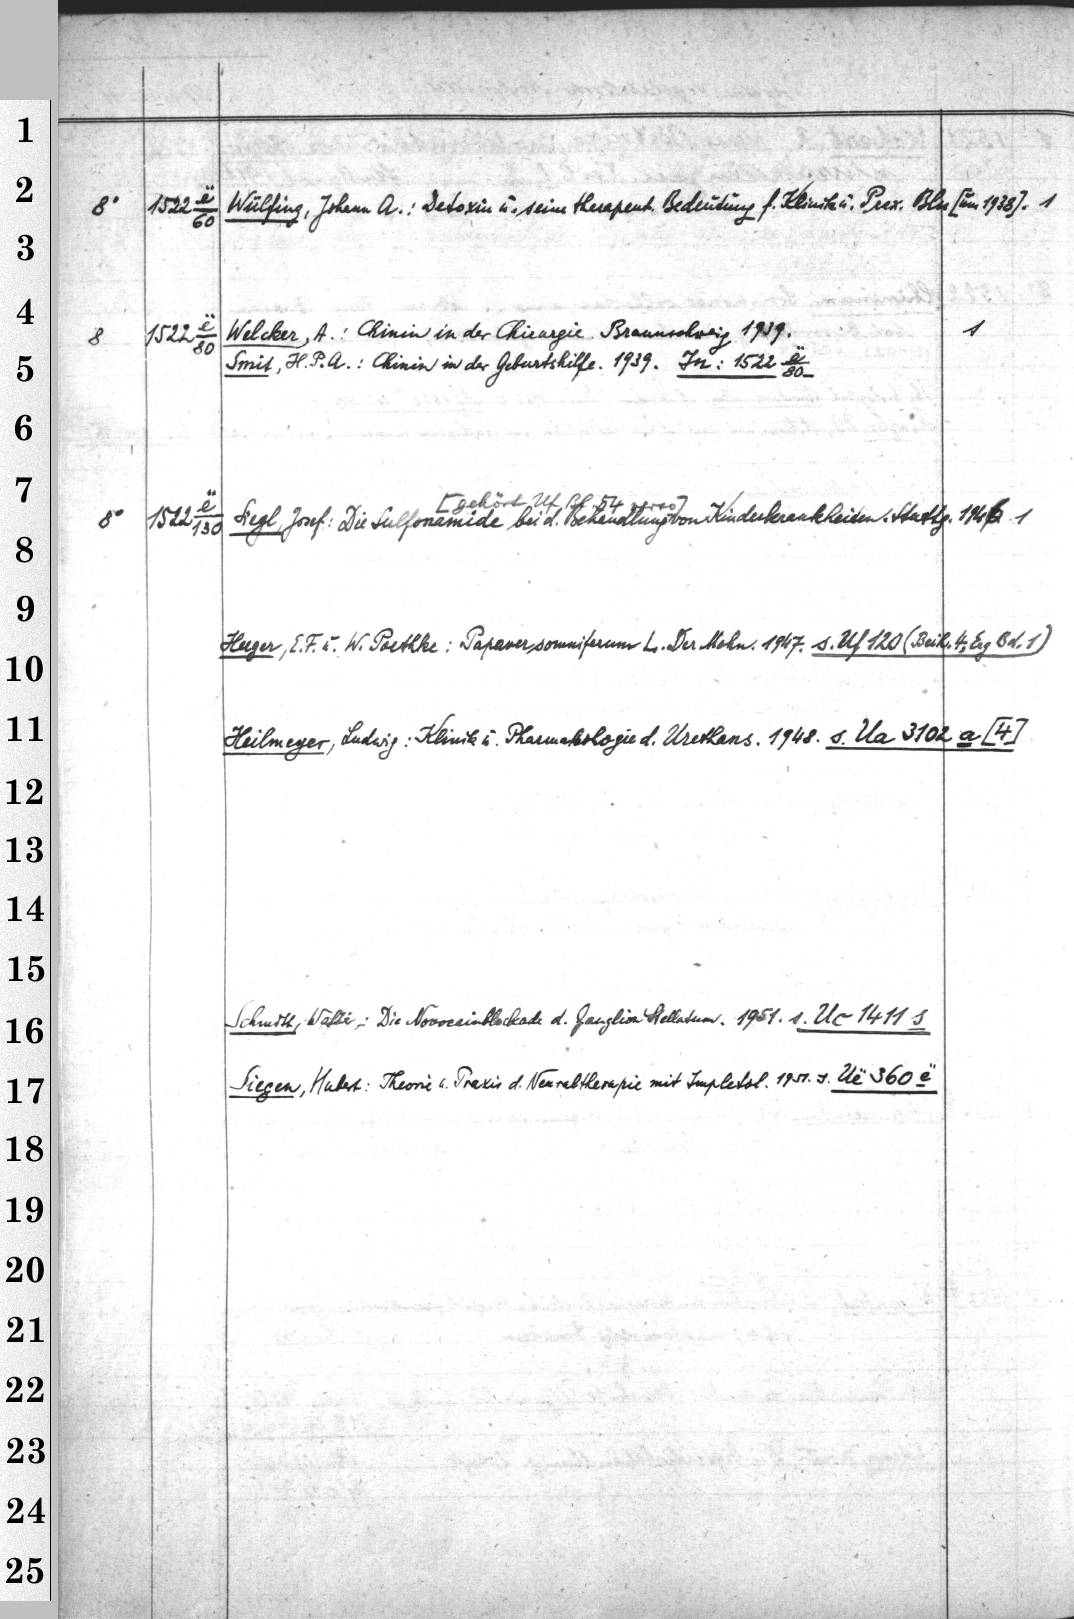 1
2
8° 1522 ë/60 Wülfing, Johann A.: Detoxin u. seine therapeut. Bedeutung f. Klinik u. Prax. Bln [um 1938]. 1
3
4
8 1522 ë/80 Welcker, A.: Chinin in der Chirurgie. Braunschweig 1939. 1
5
Smit, H.P.A.: Chinin in der Geburtshilfe. 1939. In: 1522 ë/80
6
7
[gehört Uf Bl. 54 verso]
8° 1522 ë/130 Siegl, Josef: Die Sulfonamide bei d. Behandlung von Kinderkrankheiten. Stuttg. 194 1
8
9
Heeger, E.F. u. W. Poethke: Papaver somniferum L. Der Mohn. 1947. s. Uf 120 (Beih. 4, Erg Bd. 1)
10
11
Heilmeyer, Ludwig: Klinik u. Pharmakologie d. Urethans. 1948. s. Ua 3102 a [4]
12
13
14
15
16
Schmitt, Walter: Die Novocainblockade d. Ganglion Stellatum. 1951. s. Uc 1411 s
17
Siegen, Hubert: Theorie u. Praxis d. Neuraltherapie mit Impletol. 1951. s. Uë 360 ë
18
19
20
21
22
23
24
25